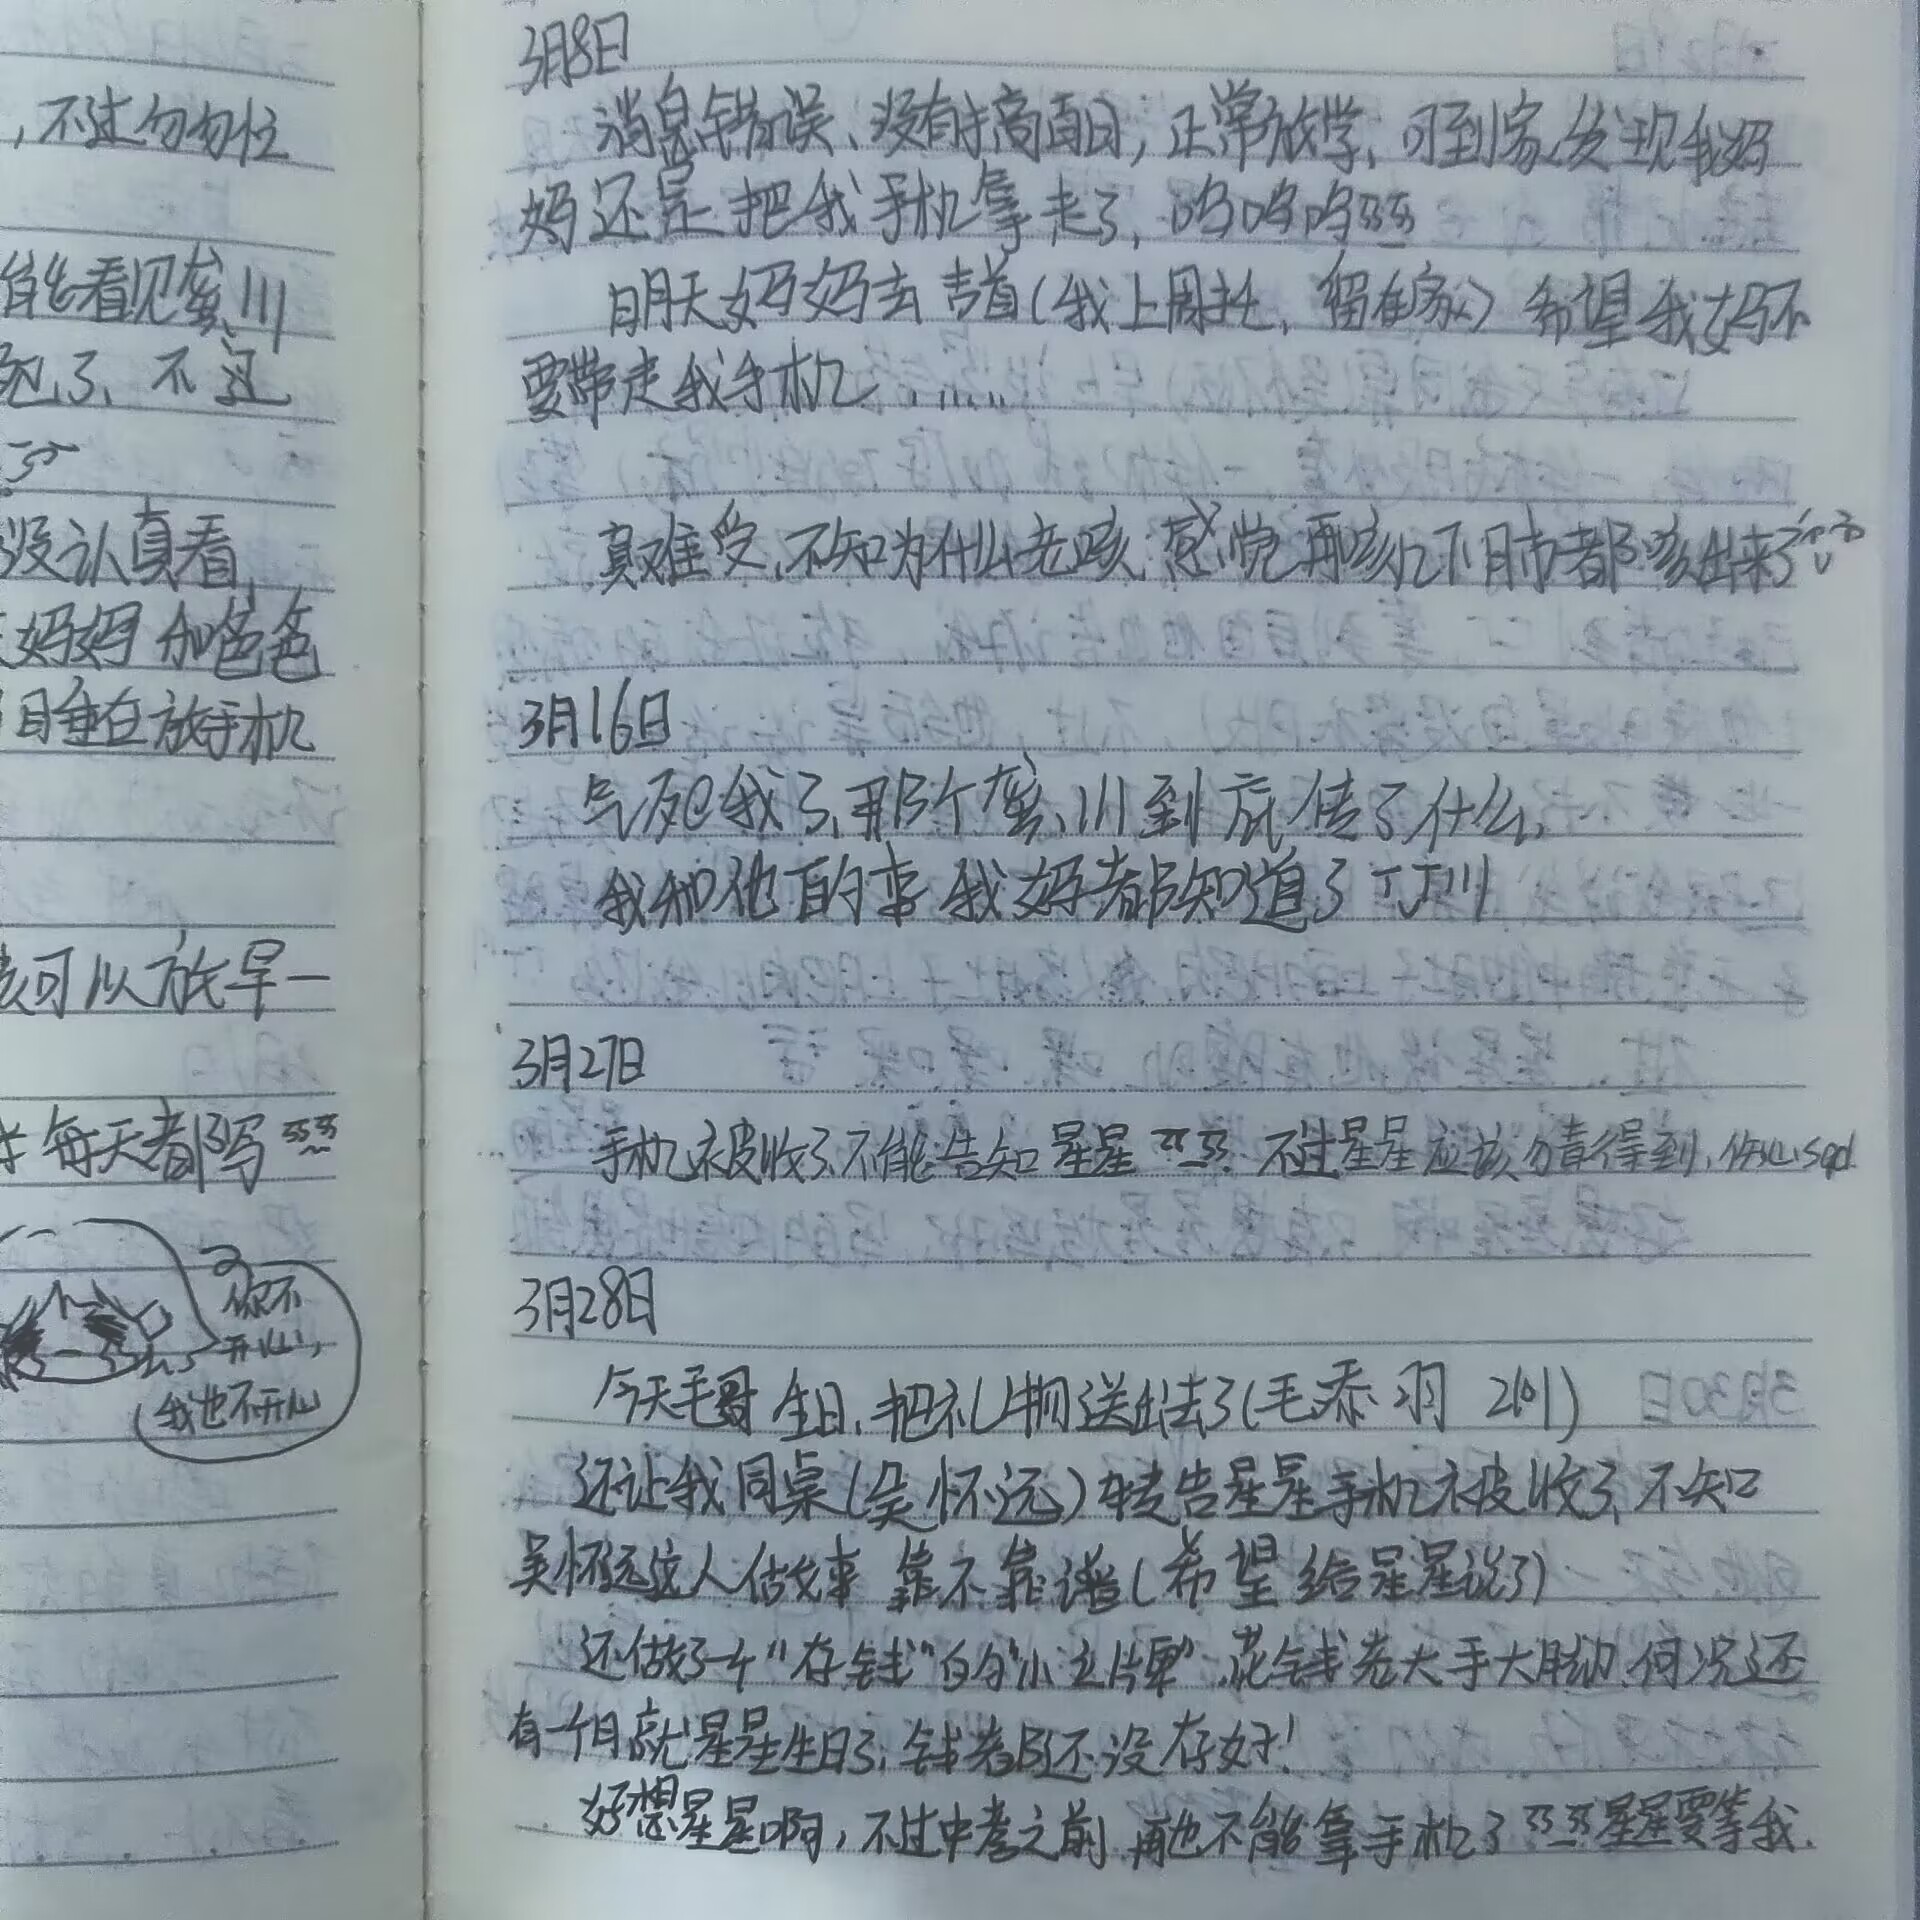 ，不过匆匆忙
能看见蛮川
了，不过
没认真看，
妈妈和爸爸
目垂白放手机
可以放早一
每天都写
你不
开心，
我也不开心
3月8日
消息错误、没有搞百日，正常放学，可到家发现我妈
妈还是把我手机拿走了，呜呜呜
明天妈妈去吉首（我上周托，留在家）希望我妈不
要带走我手机……
真难受，不知为什么老咳，感觉再咳几下肺都咳出来了
3月16日
气死我了，那个蛮川到底传了什么，
我和他的事我妈都知道了
3月27日
手机被收了不能告知星星 不过星星应该猜得到，伤心sad
3月28日
今天毛哥生日，把礼物送出去了（毛添羽 201）
还让我同桌（吴怀远）转告星星手机被收了，不知
吴怀远这人做事靠不靠谱（希望给星星说了）
还做了一个“存钱”的“小立牌”，花钱老大手大脚，何况还
有一个月就星星生日了，钱都还没存好！
好想星星啊，不过中考之前再也不能拿手机了 星星要等我.